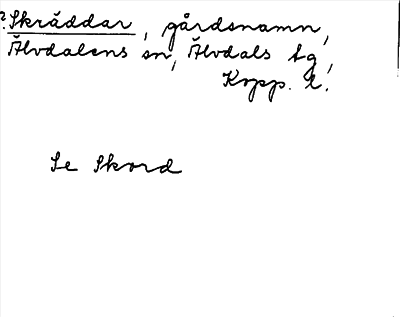 ?Skräddar, gårdsnamn,
Älvdalens sn, Älvdals tg,
Kopp. l.
Se Skord